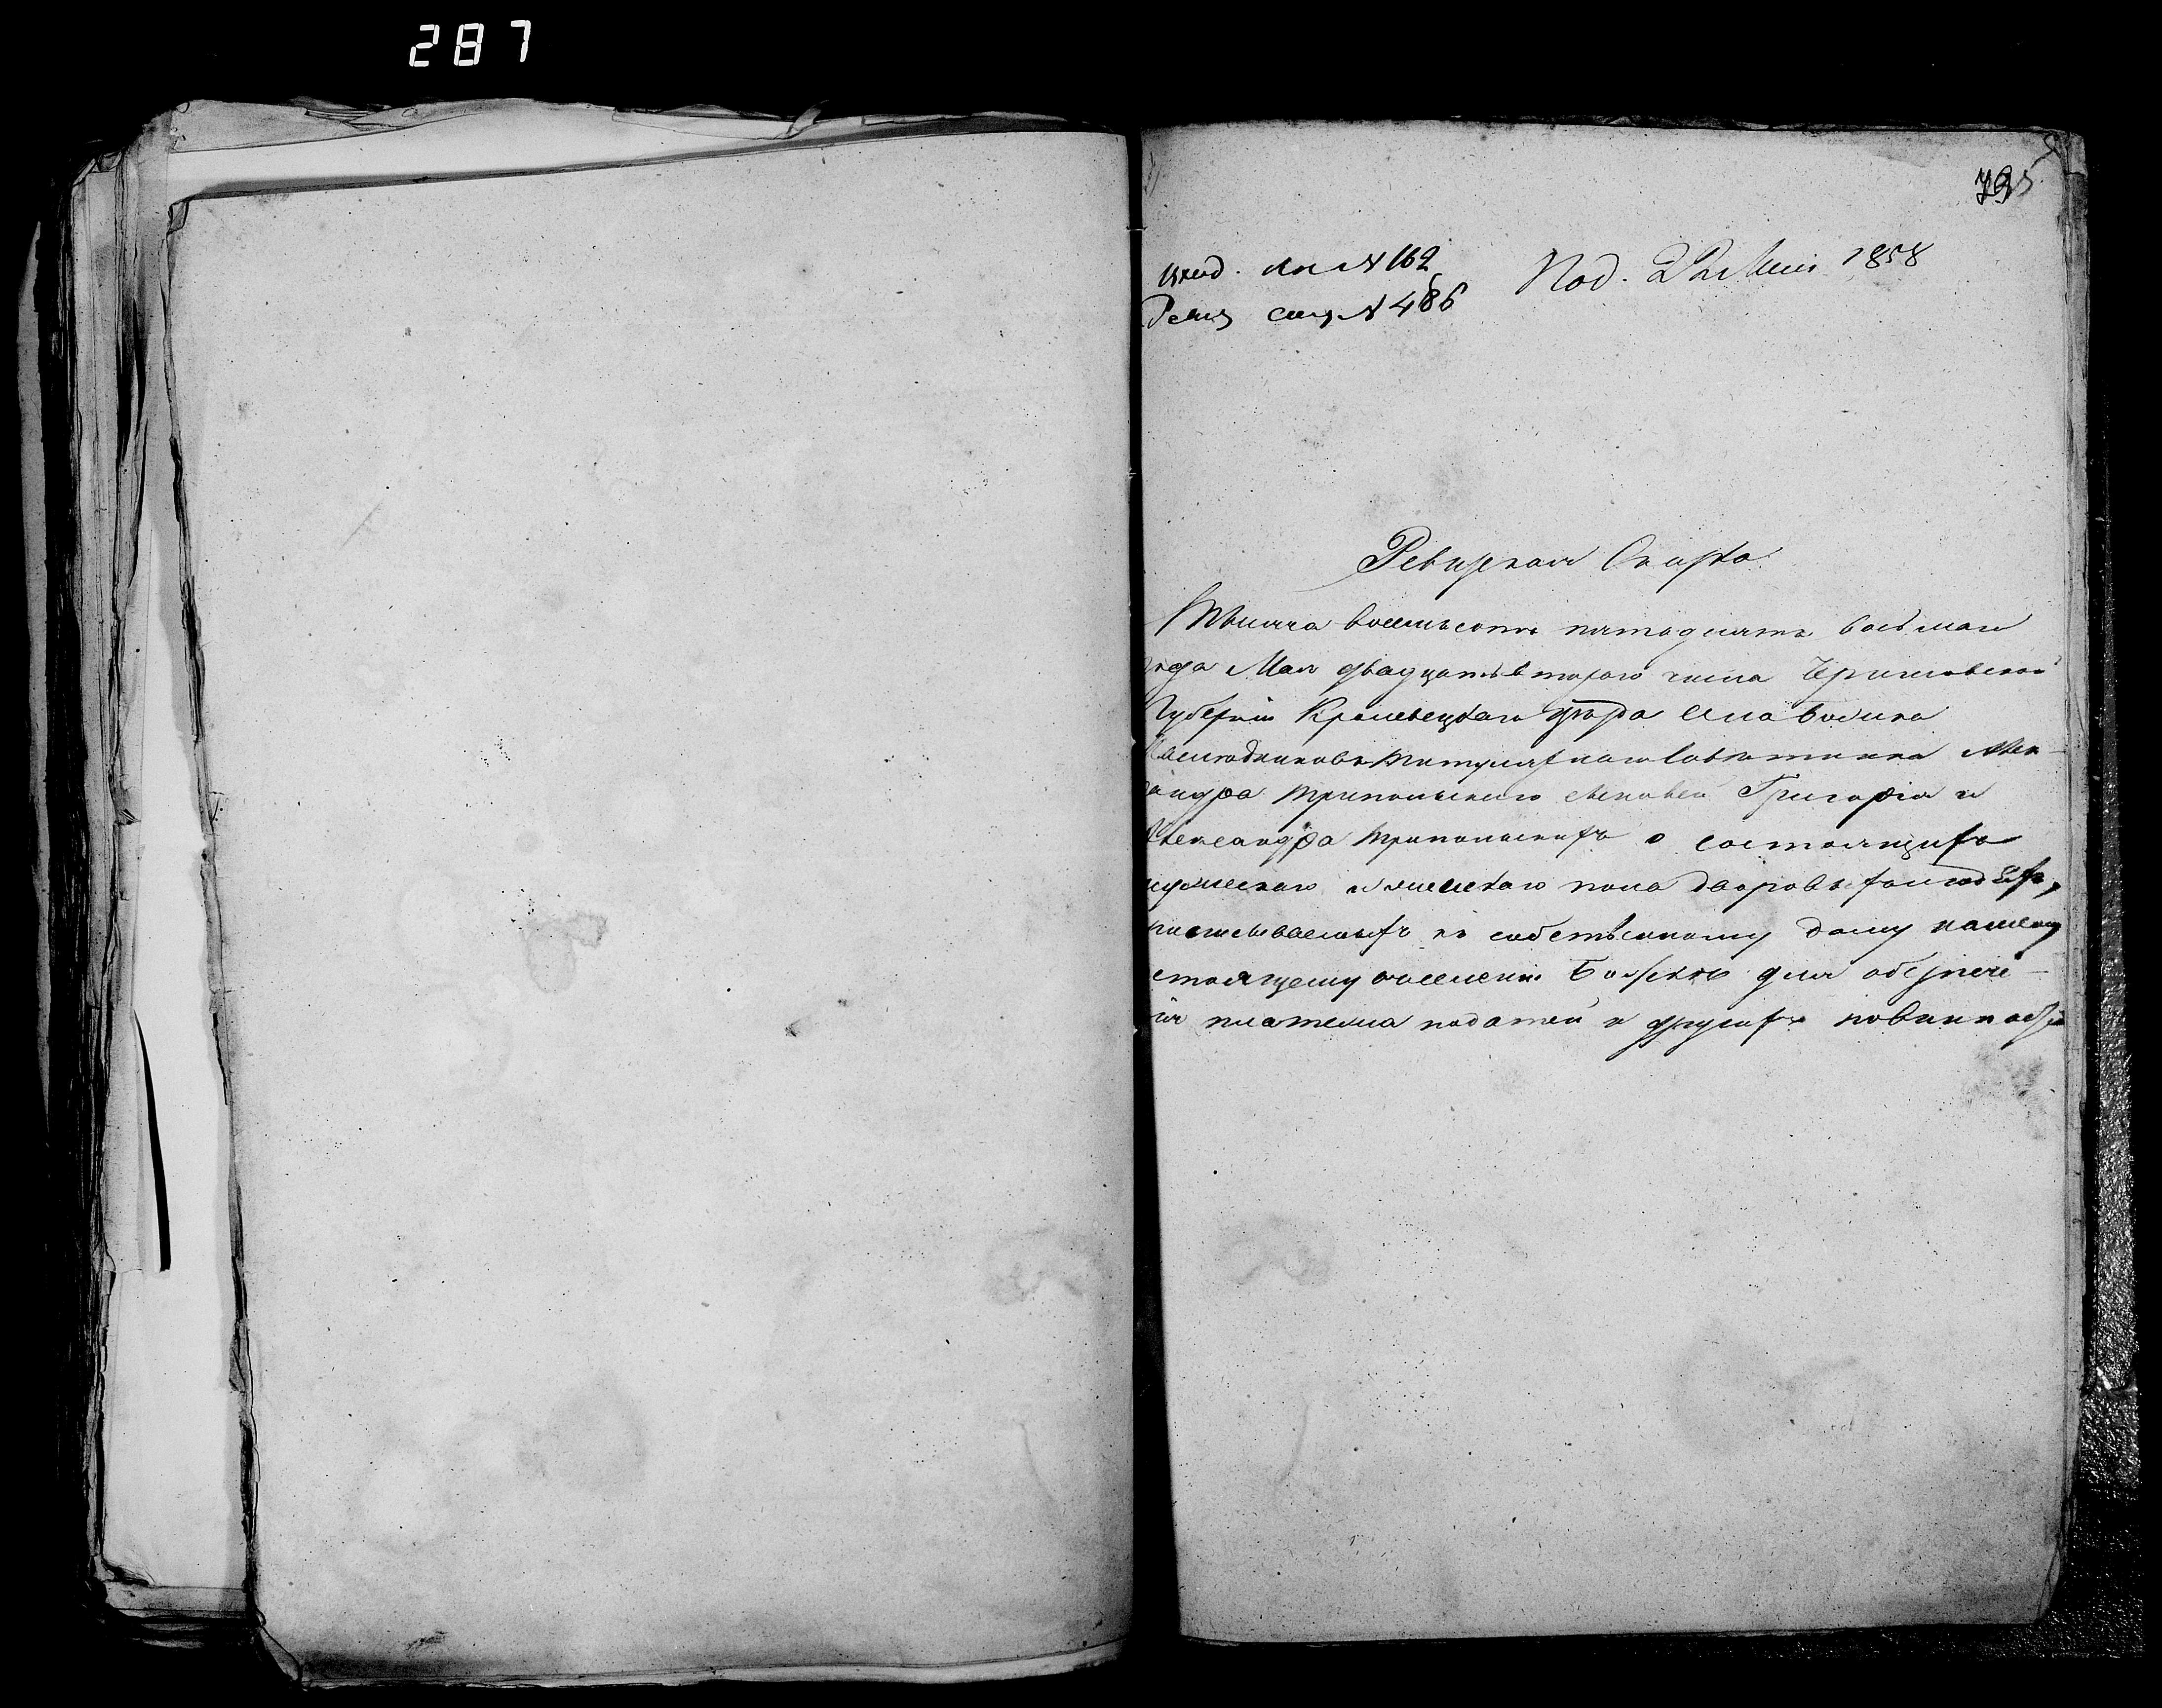 287
795
вход. № 162
Под. 22 Мая 1858
Ревиз. сказ. № 486
Ревизская Сказка
Тысяча восемьсотъ пятьдесятъ восьмаго
года Мая двадцать втораго числа Черниговской
Губерніи Кролевецкаго уѣзда села
наслѣдниковъ титулярнаго Совѣтника Алек-
сандра Трипольскаго сыновей Григорія и
Александра Трипольскихъ о состоящихъ
мужескаго и женскаго пола дворовыхъ людяхъ,
приписываемыхъ къ собственному дому нашему
стоящему в селеніи для обезпече-
нія платежа податей и другихъ повинностей